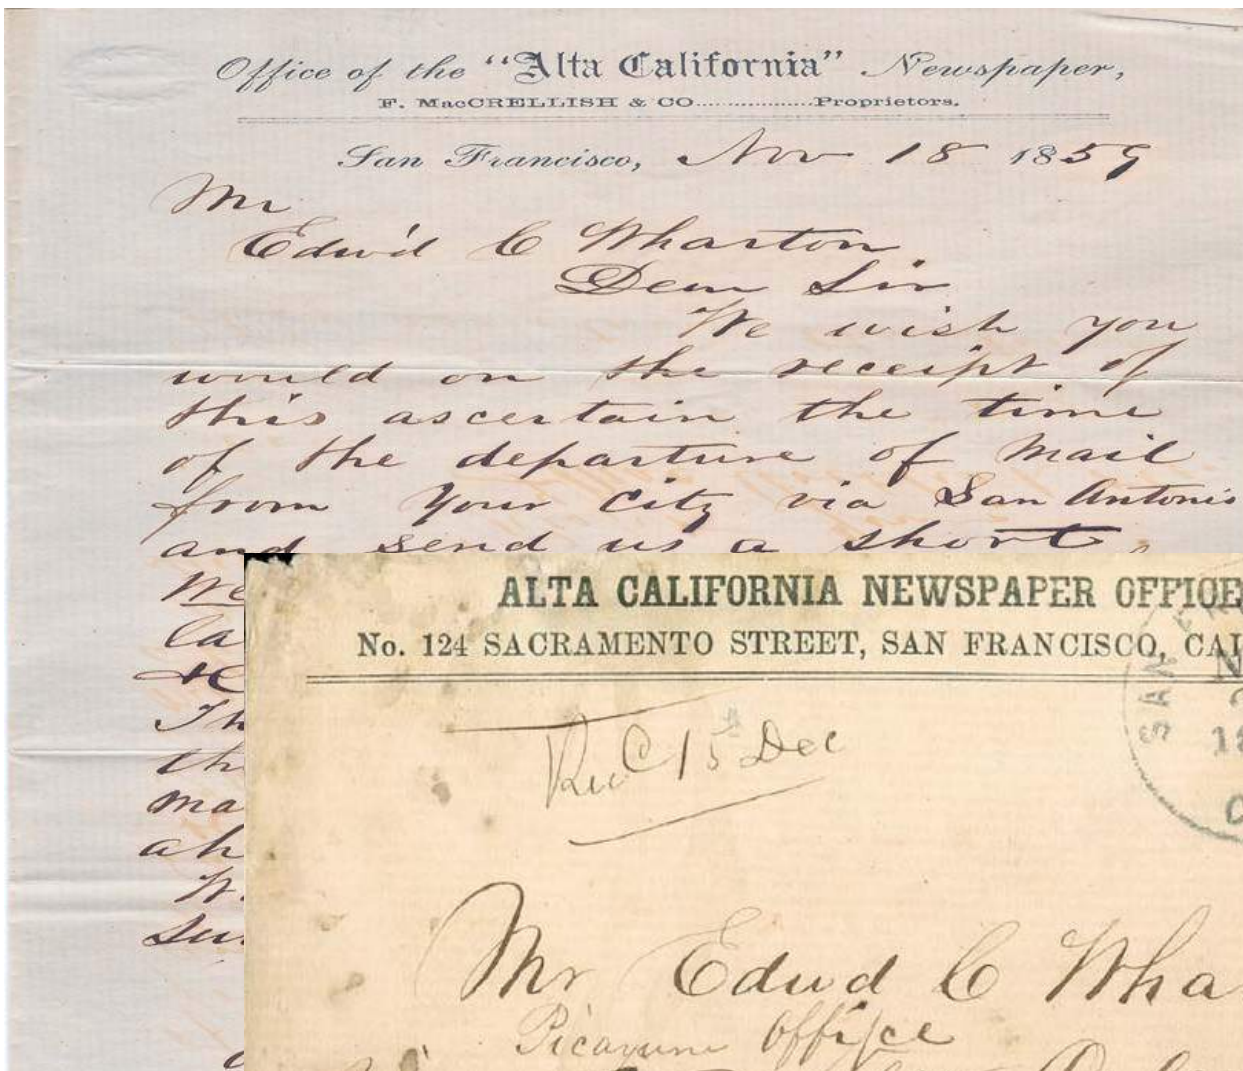 Office of the "Alta California" Newspaper,
F. MacCRELLISH & CO..................Proprietors.
San Francisco, Nov 18 1859
Mr
Edw'd C Wharton
Dear Sir
We wish you
would on the receipt of
this ascertain the time
of the departure of Mail
from your City via San Antonio
and send us a short
We
Ca
Th
th
ma
ah
W.
ALTA CALIFORNIA NEWSPAPER OFFICE
No. 124 SACRAMENTO STREET, SAN FRANCISCO, CAL
SAN
Rec 15th Dec
Mr Edwd C Wha
Picayune Office